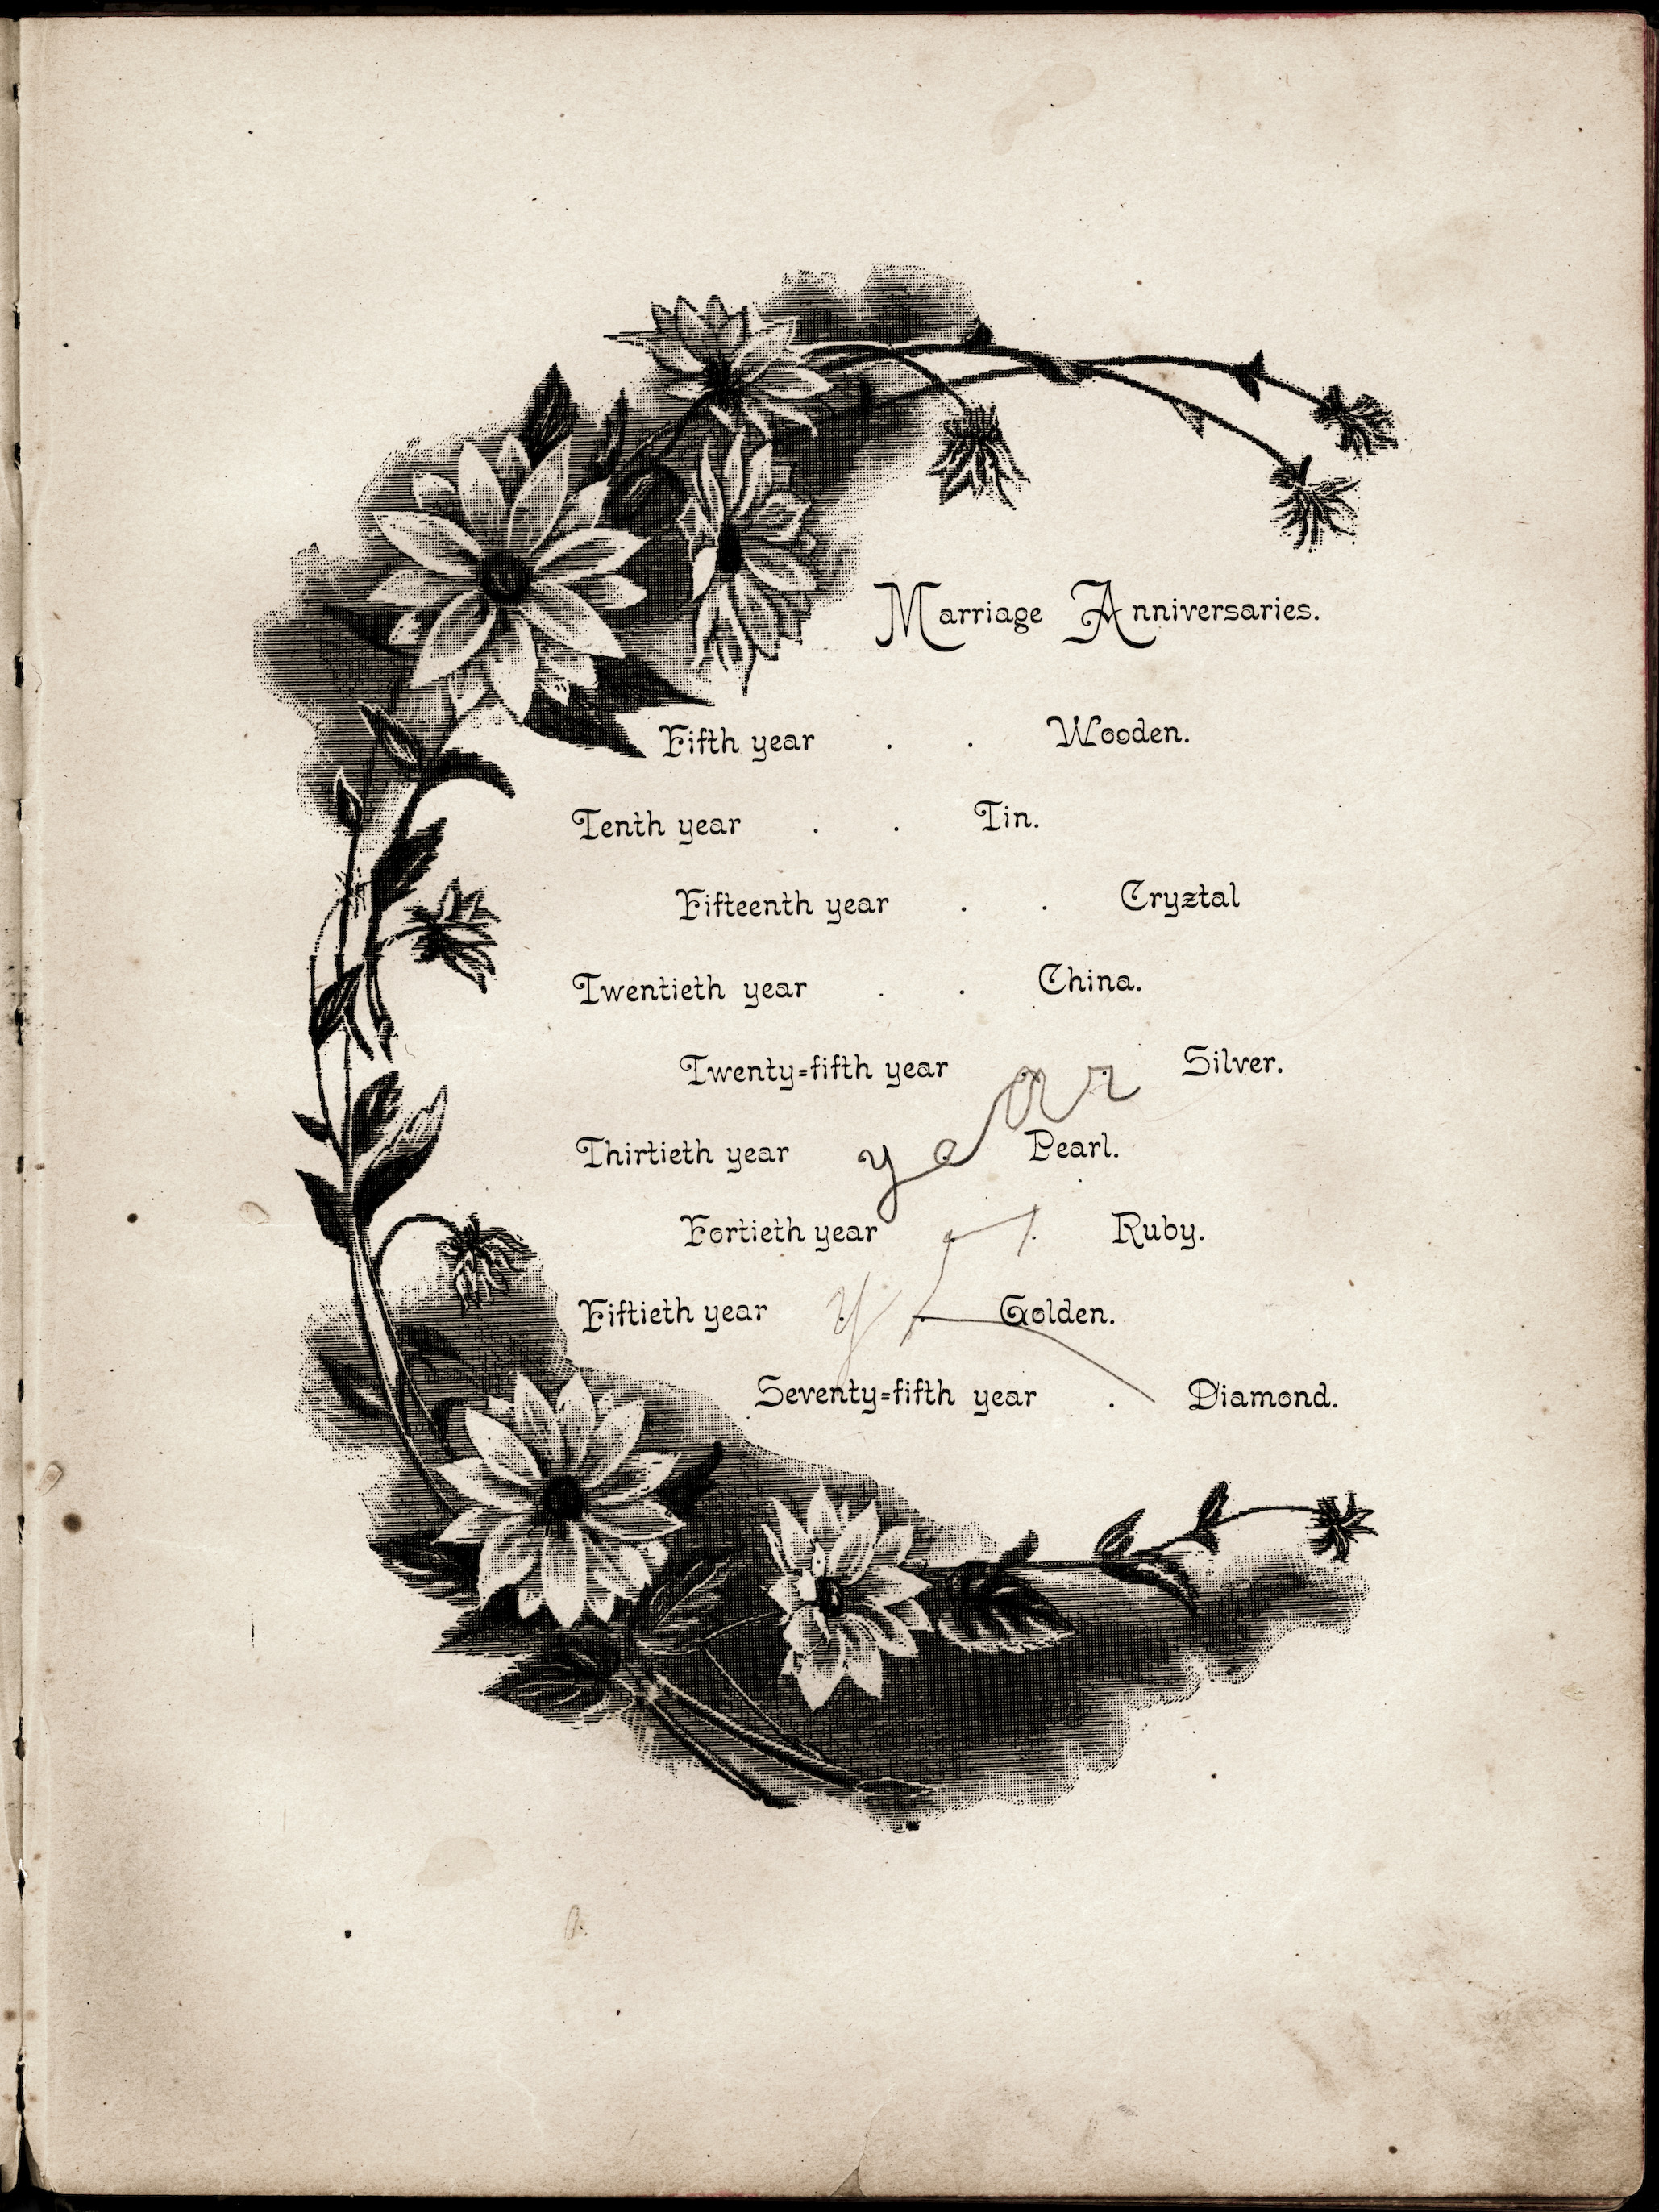 Marriage Anniversaries.
Fifth year . . Wooden.
Tenth year . . Tin.
Fifteenth year . . Cryztal
Twentieth year . . China.
Twenty=fifth year Silver.
year
Thirtieth year Pearl.
Fortieth year . . Ruby.
Fiftieth year . . Golden.
y
Seventy=fifth year . Diamond.